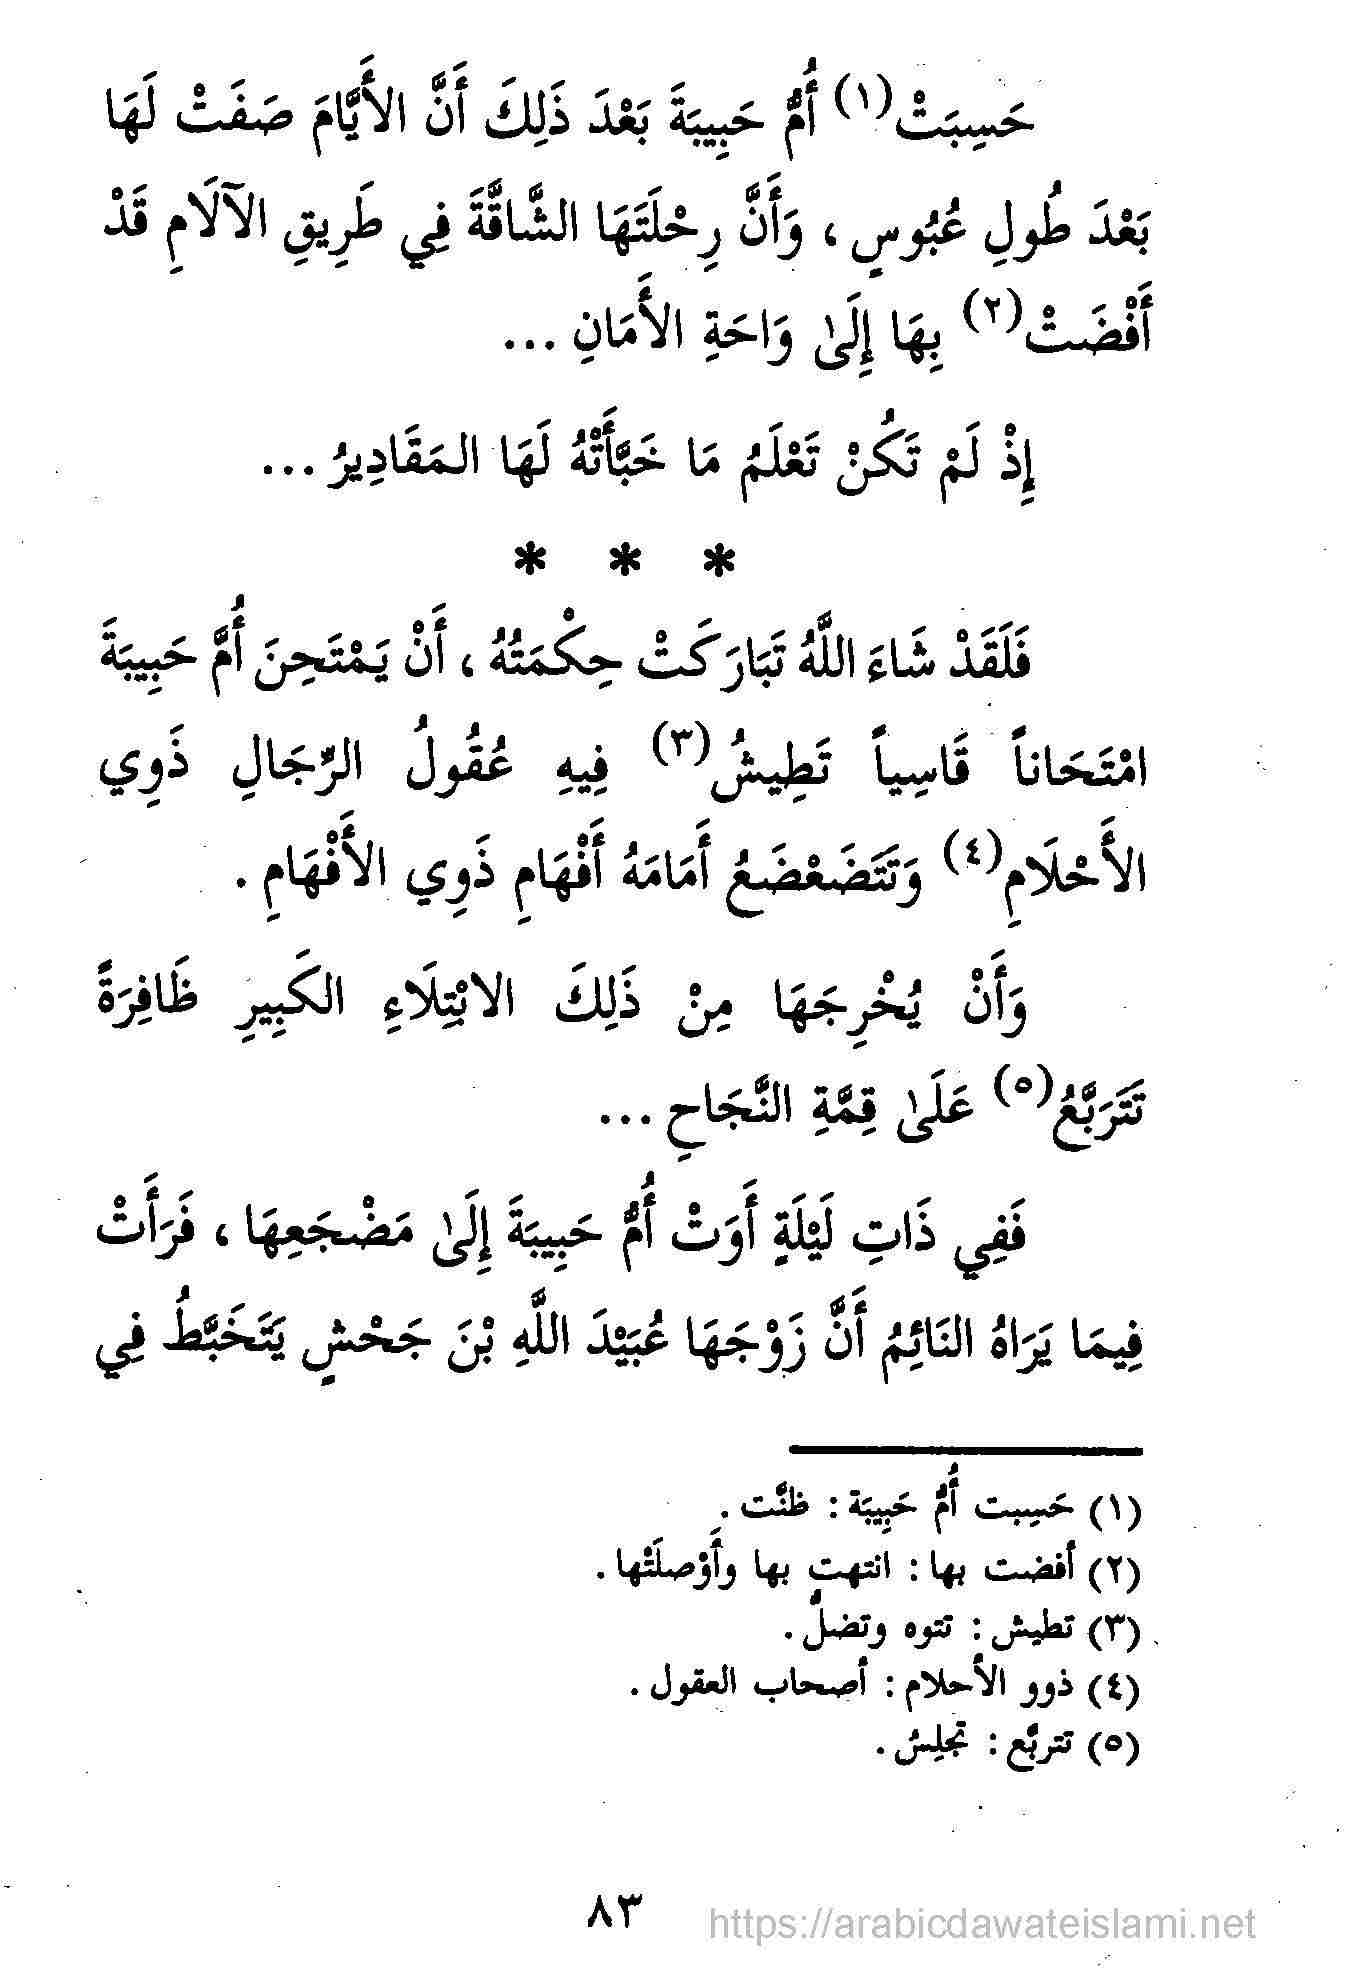 حَسِبَتْ(١) أُمُّ حَبِيبَةَ بَعْدَ ذَلِكَ أَنَّ الأَيَّامَ صَفَتْ لَهَا
بَعْدَ طُولِ عُبُوسٍ ، وَأَنَّ رِحْلَتَهَا الشَّاقَّةَ فِي طَرِيقِ الآلَامِ قَدْ
أَفْضَتْ(٢) بِهَا إِلَىٰ وَاحَةِ الأَمَانِ ...
إِذْ لَمْ تَكُنْ تَعْلَمُ مَا خَبَّأَتْهُ لَهَا المَقَادِيرُ ...
* * *
فَلَقَدْ شَاءَ اللَّهُ تَبَارَكَتْ حِكْمَتُهُ ، أَنْ يَمْتَحِنَ أُمَّ حَبِيبَةَ
امْتَحَاناً قَاسِياً تَطِيشُ(٣) فِيهِ عُقُولُ الرِّجَالِ ذَوِي
الأَحْلَامِ(٤) وَتَتَضَعْضَعُ أَمَامَهُ أَفْهَامِ ذَوِي الأَفْهَامِ .
وَأَنْ يُخْرِجَهَا مِنْ ذَلِكَ الابْتِلَاءِ الكَبِيرِ ظَافِرَةً
تَتَرَبَّعُ(٥) عَلَىٰ قِمَّةِ النَّجَاحِ ...
فَفِي ذَاتِ لَيْلَةٍ أَوَتْ أُمُّ حَبِيبَةَ إِلَىٰ مَضْجَعِهَا ، فَرَأَتْ
فِيمَا يَرَاهُ النَائِمُ أَنَّ زَوْجَهَا عُبَيْدَ اللَّهِ بْنَ جَحْشٍ يَتَخَبَّطُ فِي
(١) حَسِبت أُمُّ حَبِيبَة : ظنَّت .
(٢) أفضت بها : انتهت بها وأَوْصلَتْها .
(٣) تطيش : تتوه وتضلُّ .
(٤) ذوو الأحلام : أصحاب العقول .
(٥) تتربَّع : تجلِسُ .
٨٣
https://arabicdawateislami.net